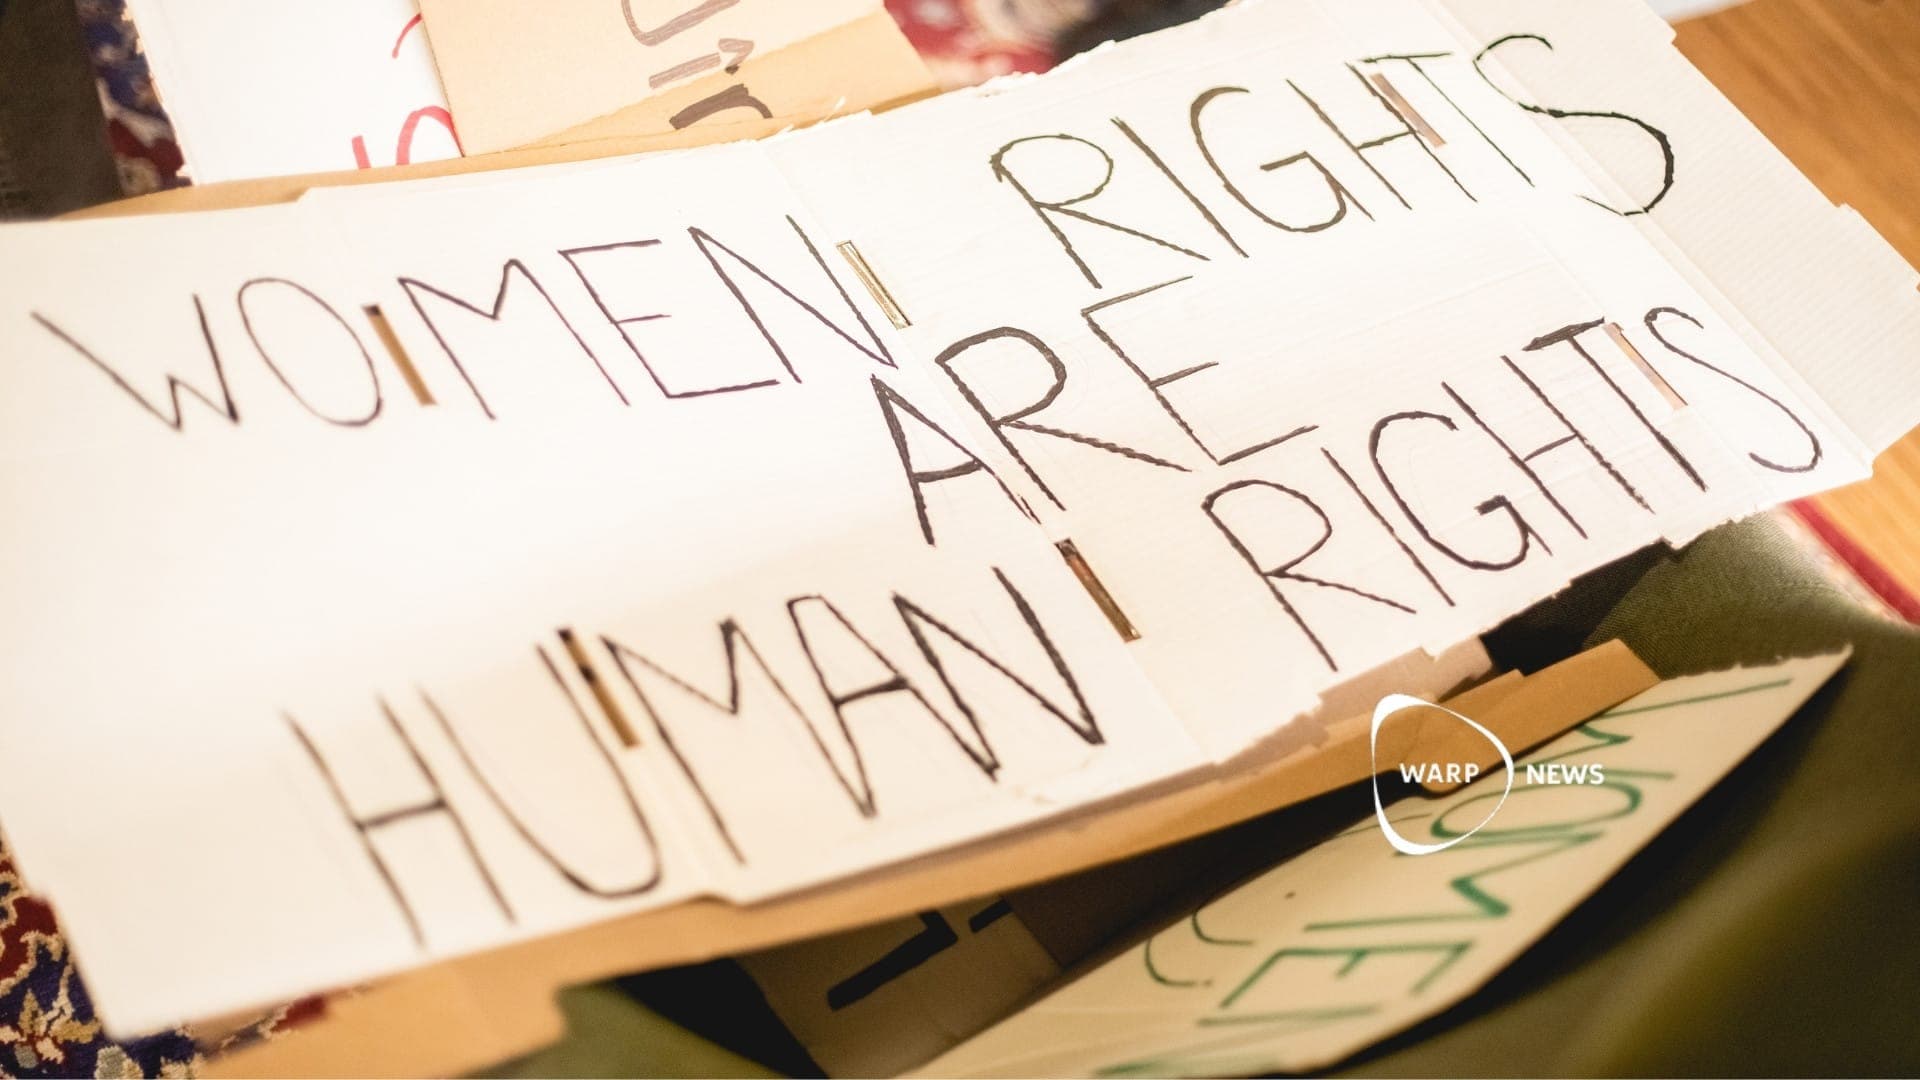 WOMEN RIGHTS
ARE
HUMAN RIGHTS
WARP NEWS
WOMEN